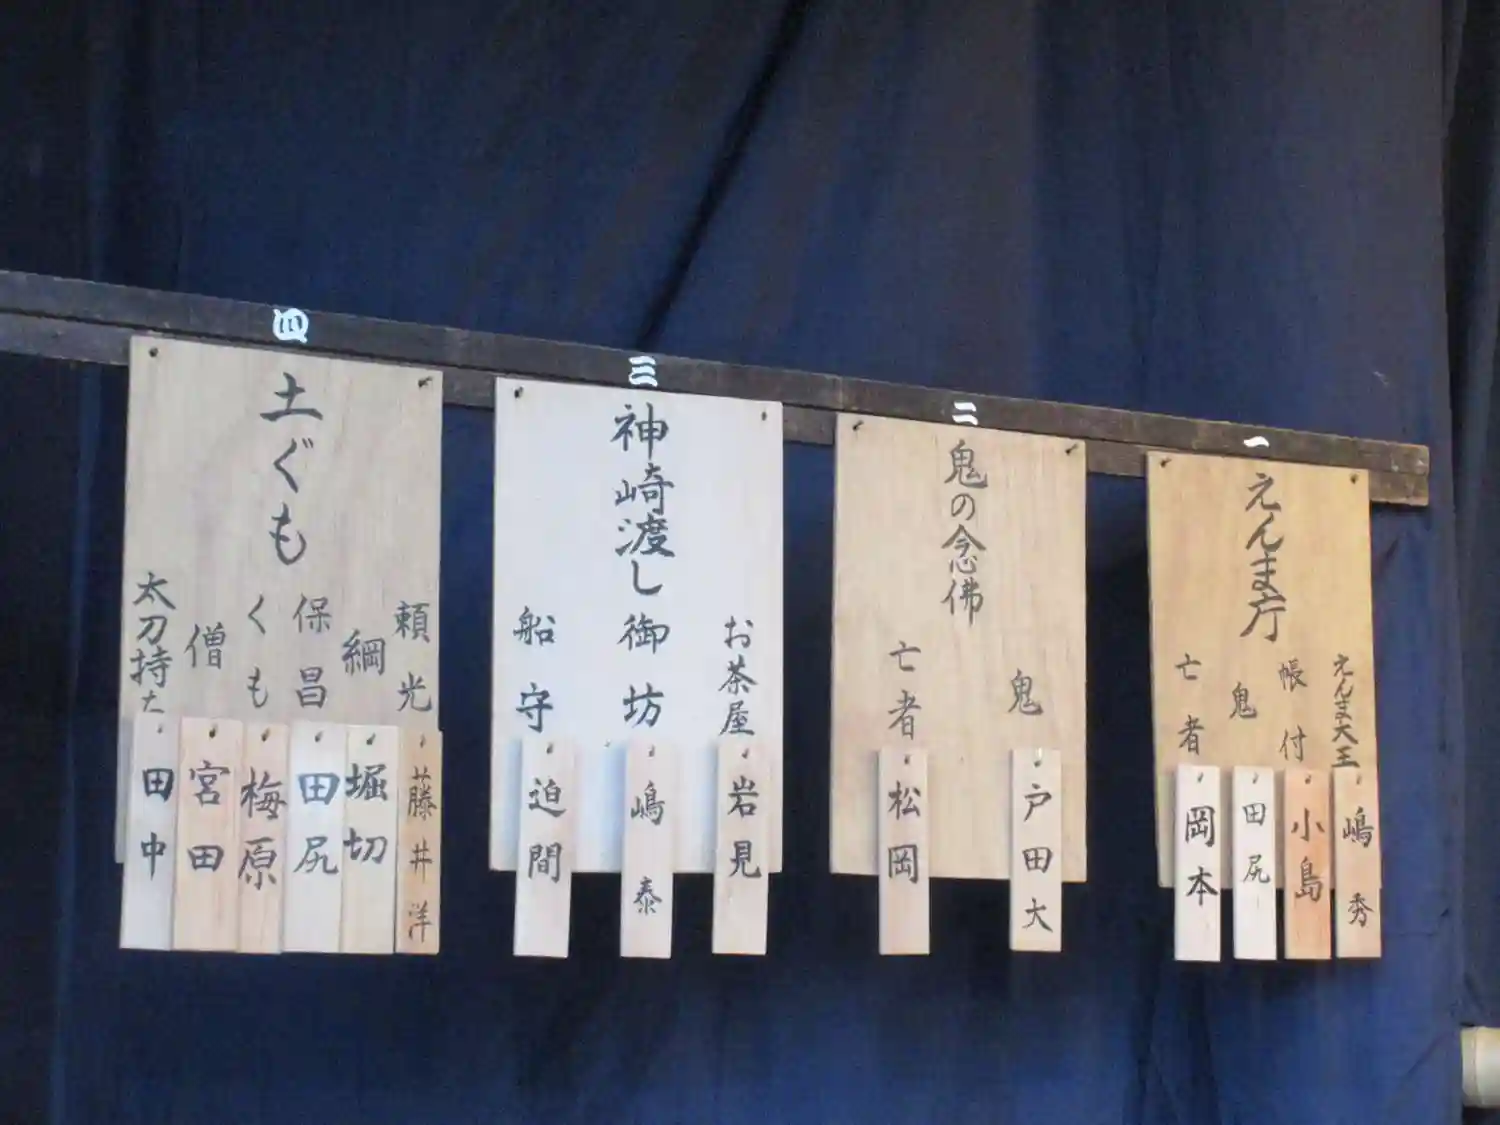 一
えんま庁
えんま大王
嶋 秀
帳付
小島
鬼
田尻
亡者
岡本
二
鬼の念佛
鬼
戸田大
亡者
松岡
三
神崎渡し
お茶屋
岩見
御坊
嶋 泰
船守
迫間
四
土ぐも
頼光
藤井洋
綱
堀切
保昌
田尻
くも
梅原
僧
宮田
太刀持ち
田中